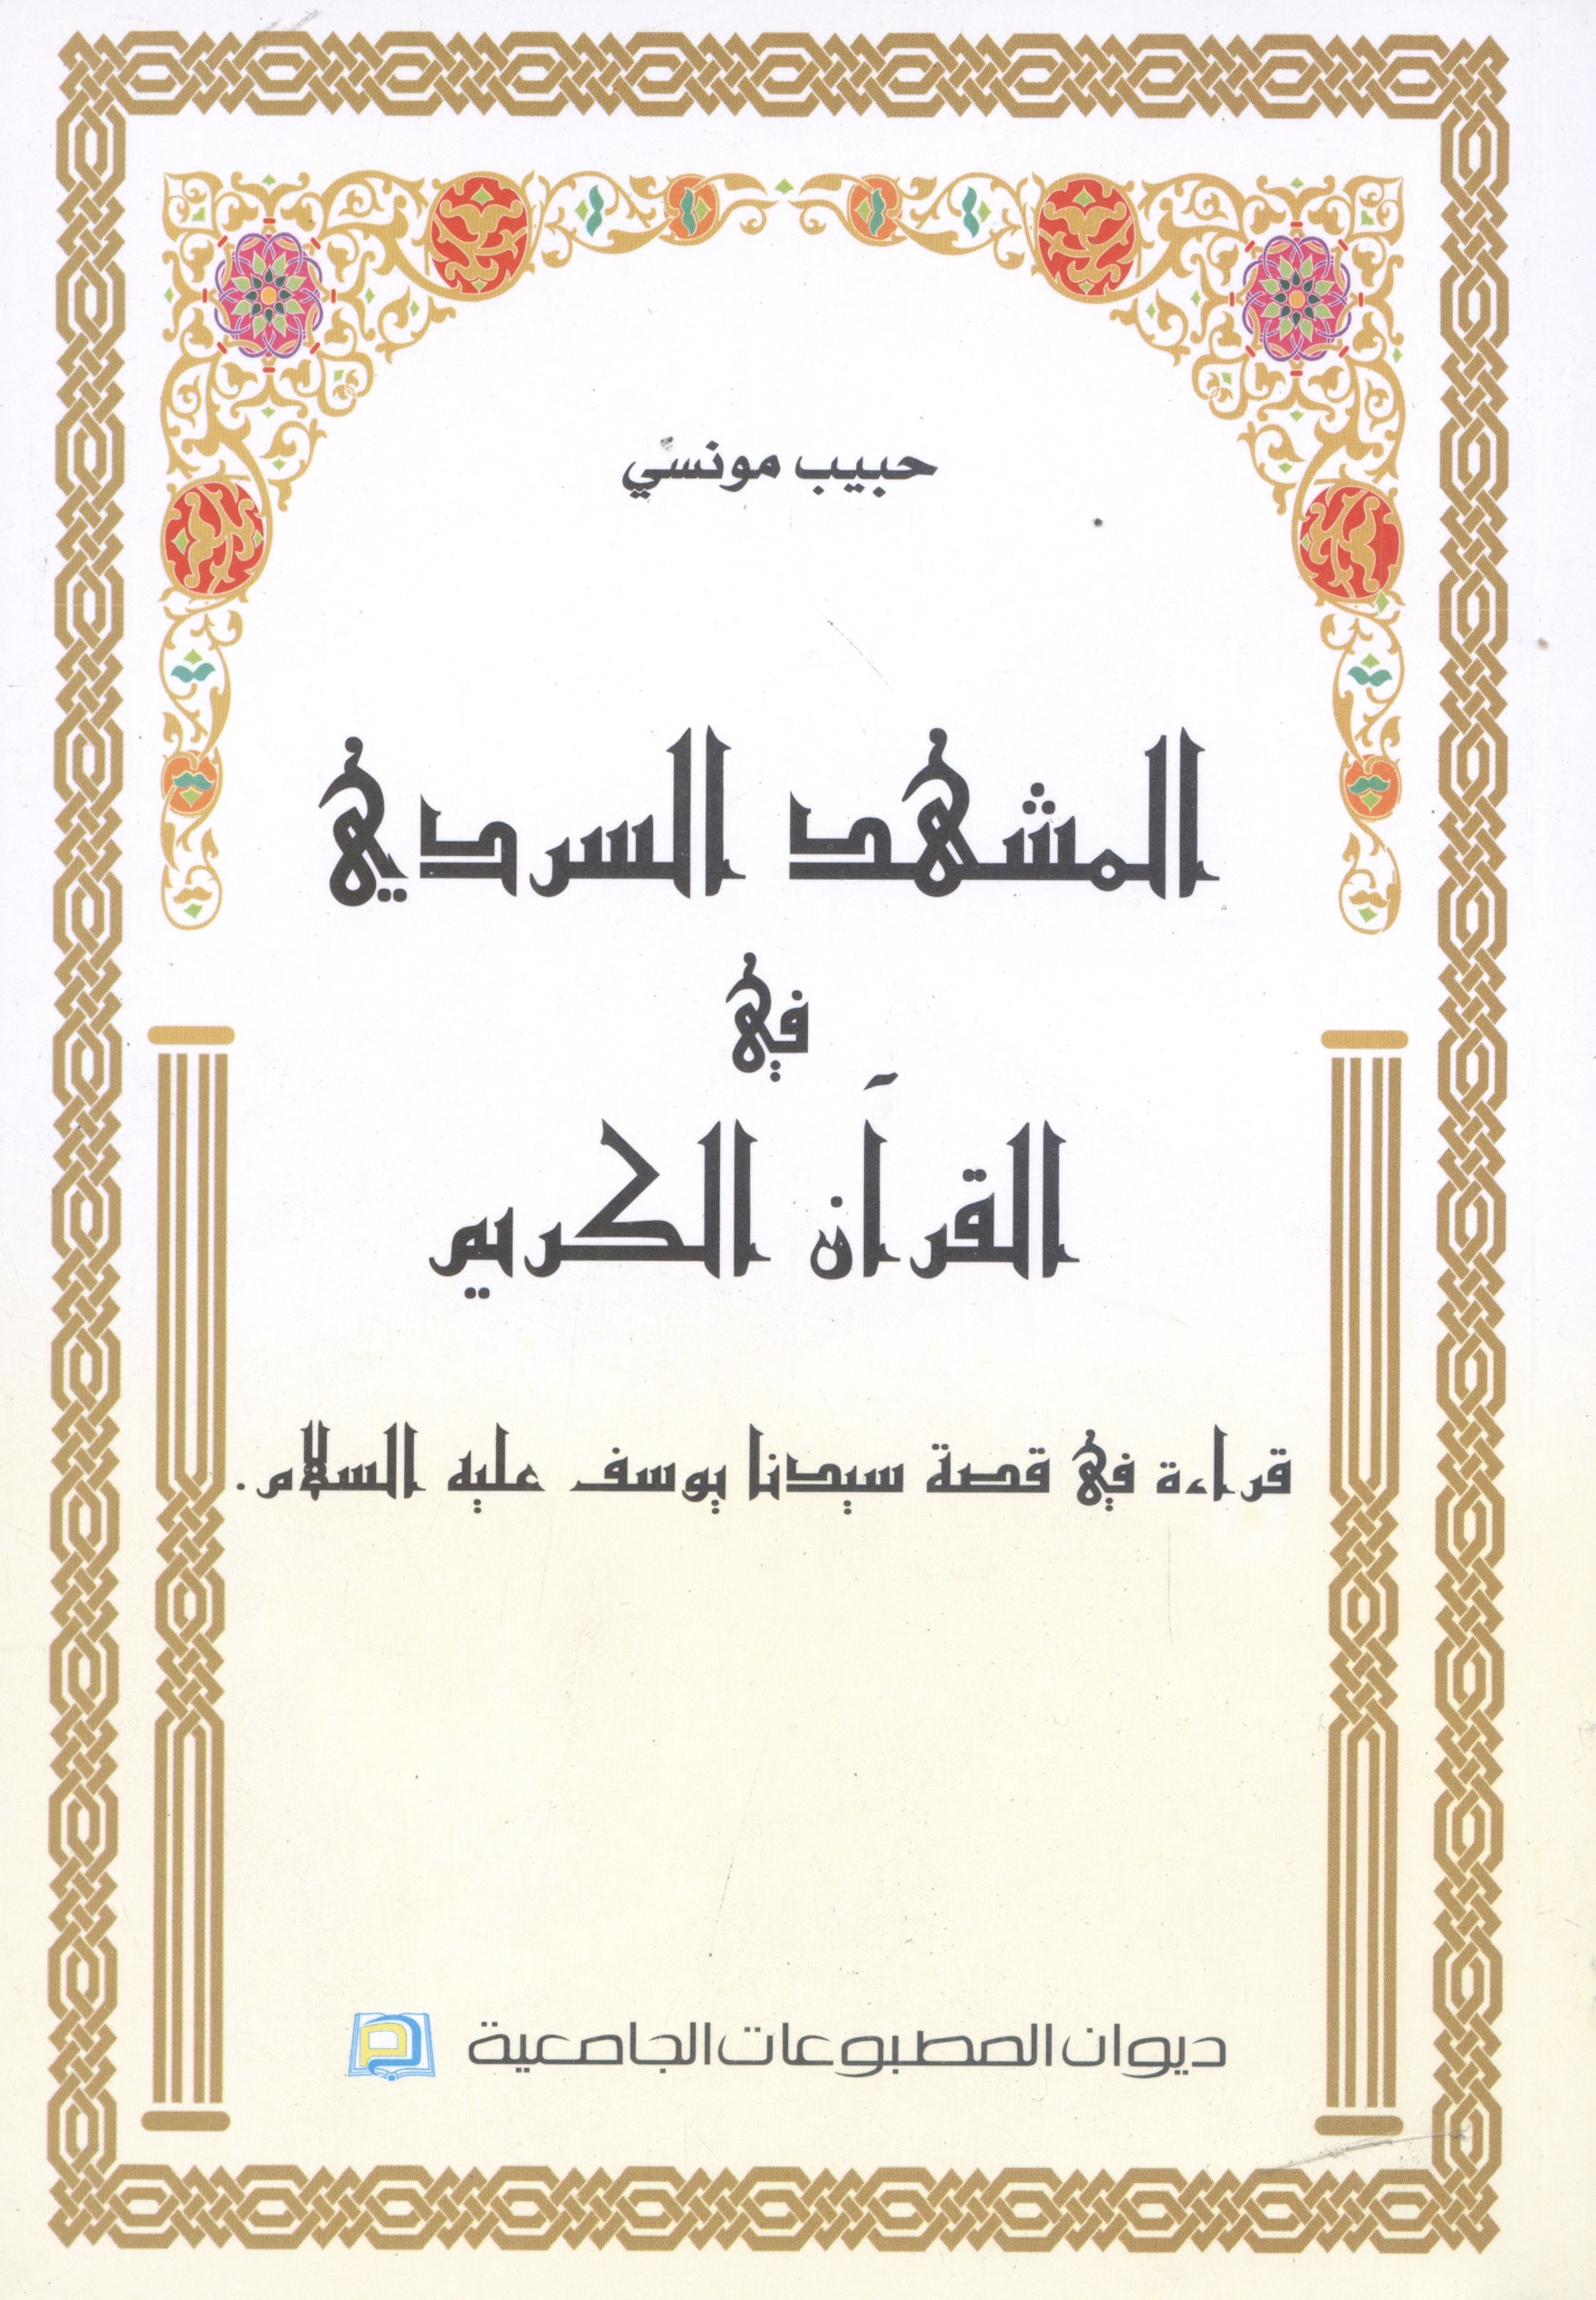 حبيب مونسي
المشهد السردي
في
القرآن الكريم
قراءة في قصة سيدنا يوسف عليه السلام.
ديوان المطبوعات الجامعية